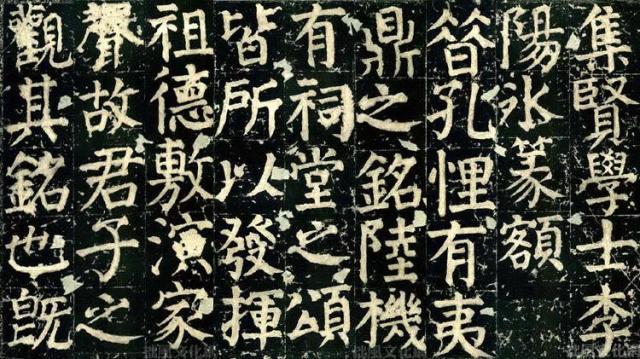 集賢學士李
陽冰篆額
昔孔悝有夷
鼎之銘陸機
有祠堂之頌
皆所以發揮
祖德敷演家
聲故君子之
觀其銘也既